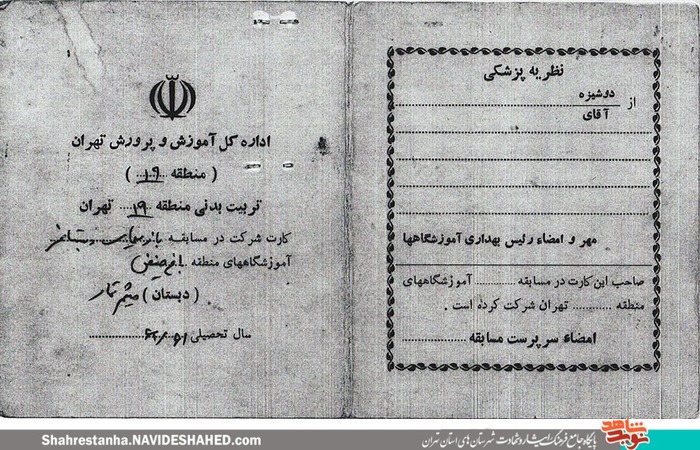 نظریه پزشکی
از دوشیزه
آقای
مهر و امضاء رئیس بهداری آموزشگاهها
صاحب این کارت در مسابقه ............ آموزشگاههای
منطقه ............ تهران شرکت کرده است .
امضاء سرپرست مسابقه ............
اداره کل آموزش و پرورش تهران
( منطقه ۱۹ )
تربیت بدنی منطقه ۱۹ تهران
کارت شرکت در مسابقه
آموزشگاههای منطقه
( دبستان ) میثم تمار
سال تحصیلی
Shahrestanha.NAVIDESHAHED.com
نوید شاهد
پایگاه جامع فرهنگ ایثار و شهادت شهرستان های استان تهران